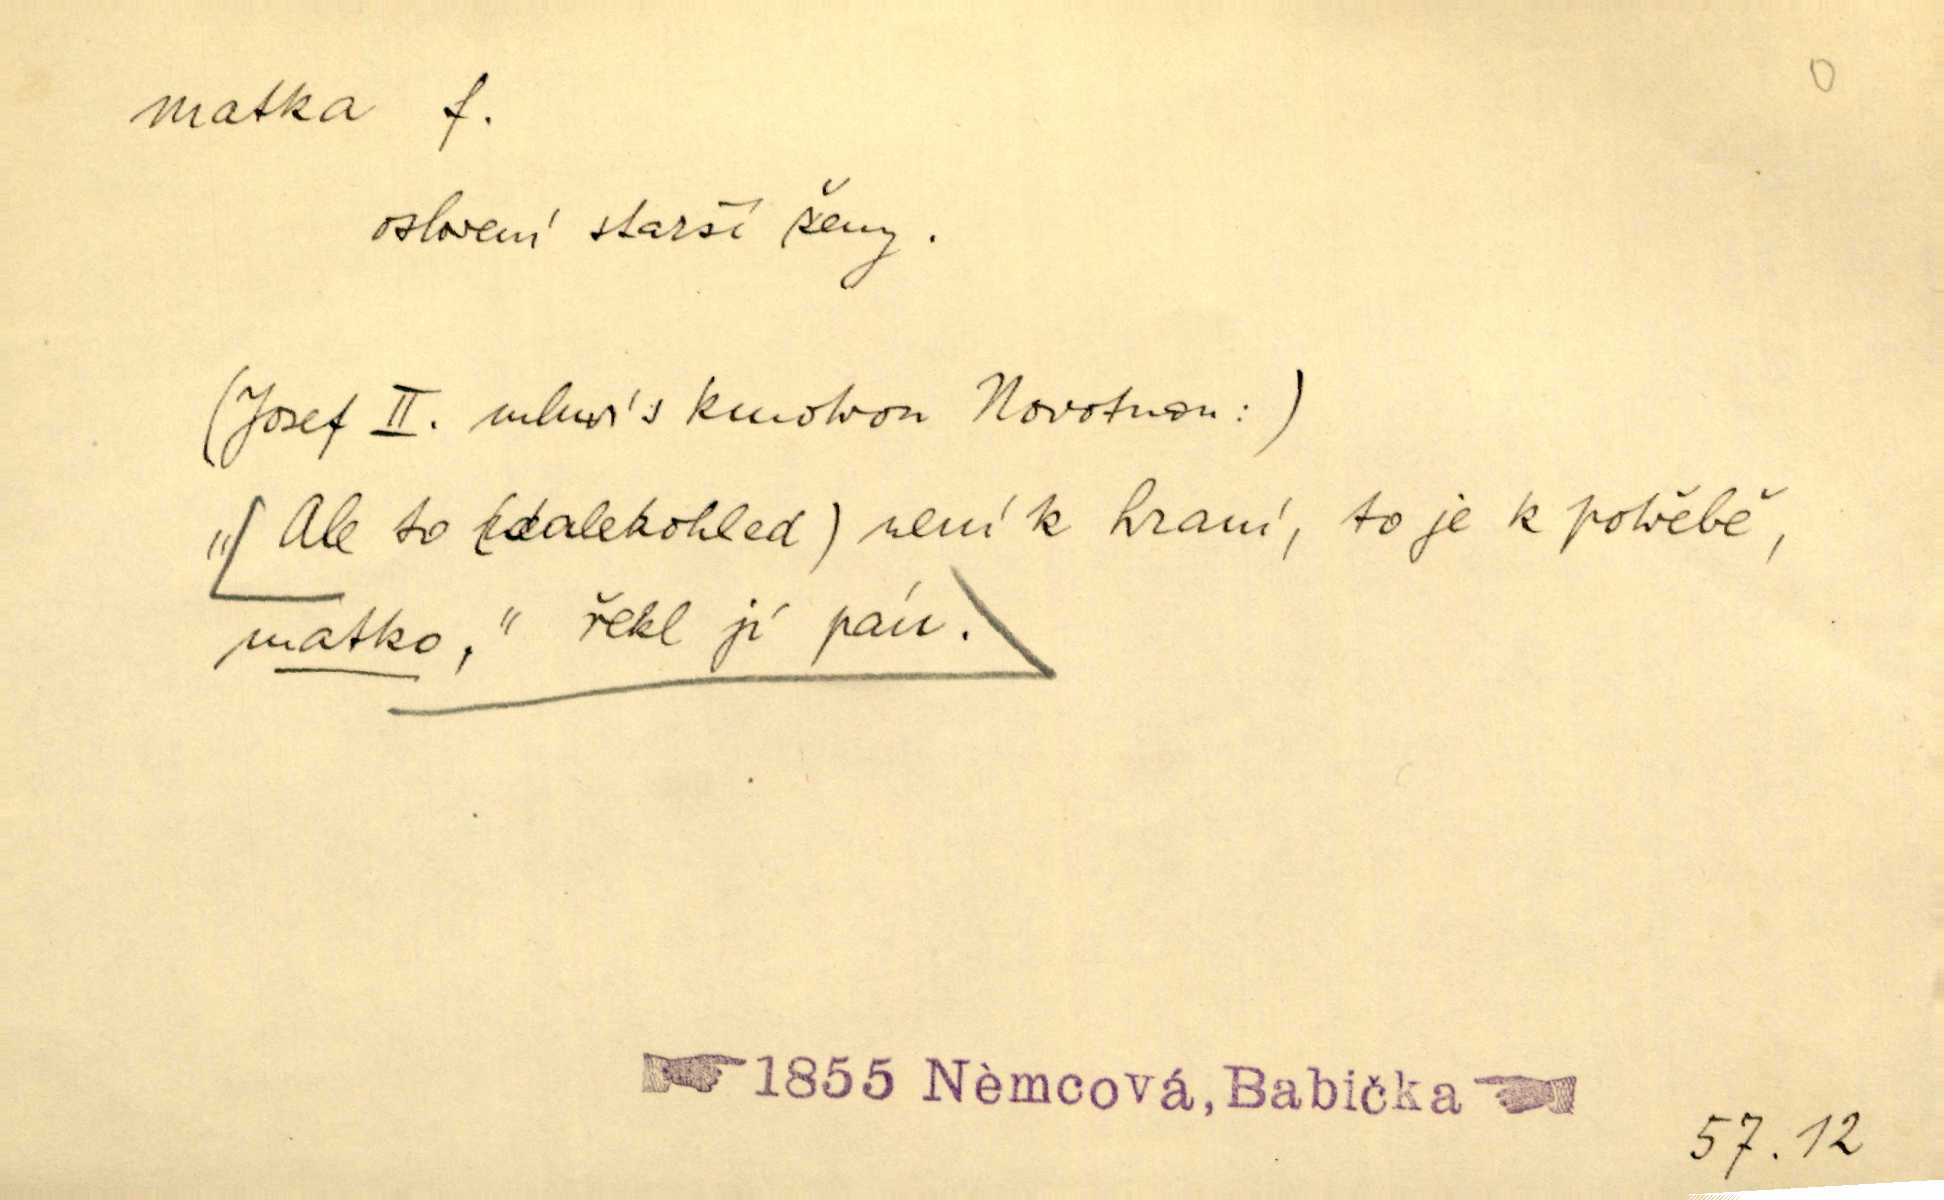 O
matka f.
oslovení starší ženy.
(Josef II. mluví s kmotrou Novotnou:)
„[Ale to (dalekohled) není k hraní, to je k potřebě,
matko,“ řekl jí pán.
1855 Nèmcová, Babička
57.12